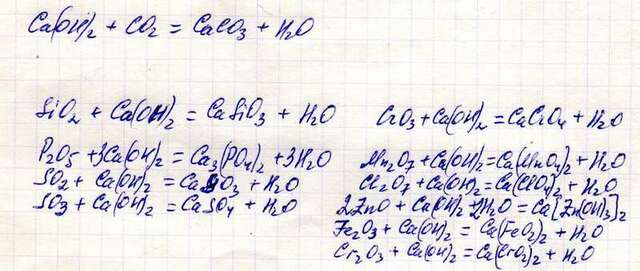 Ca(OH)2 + CO2 = CaCO3 + H2O
SiO2 + Ca(OH)2 = CaSiO3 + H2O
P2O5 + 3Ca(OH)2 = Ca3(PO4)2 + 3H2O
SO2 + Ca(OH)2 = CaSO3 + H2O
SO3 + Ca(OH)2 = CaSO4 + H2O
CrO3 + Ca(OH)2 = CaCrO4 + H2O
Mn2O7 + Ca(OH)2 = Ca(MnO4)2 + H2O
Cl2O7 + Ca(OH)2 = Ca(ClO4)2 + H2O
2ZnO + Ca(OH)2 + 2H2O = Ca[Zn(OH)3]2
Fe2O3 + Ca(OH)2 = Ca(FeO2)2 + H2O
Cr2O3 + Ca(OH)2 = Ca(CrO2)2 + H2O